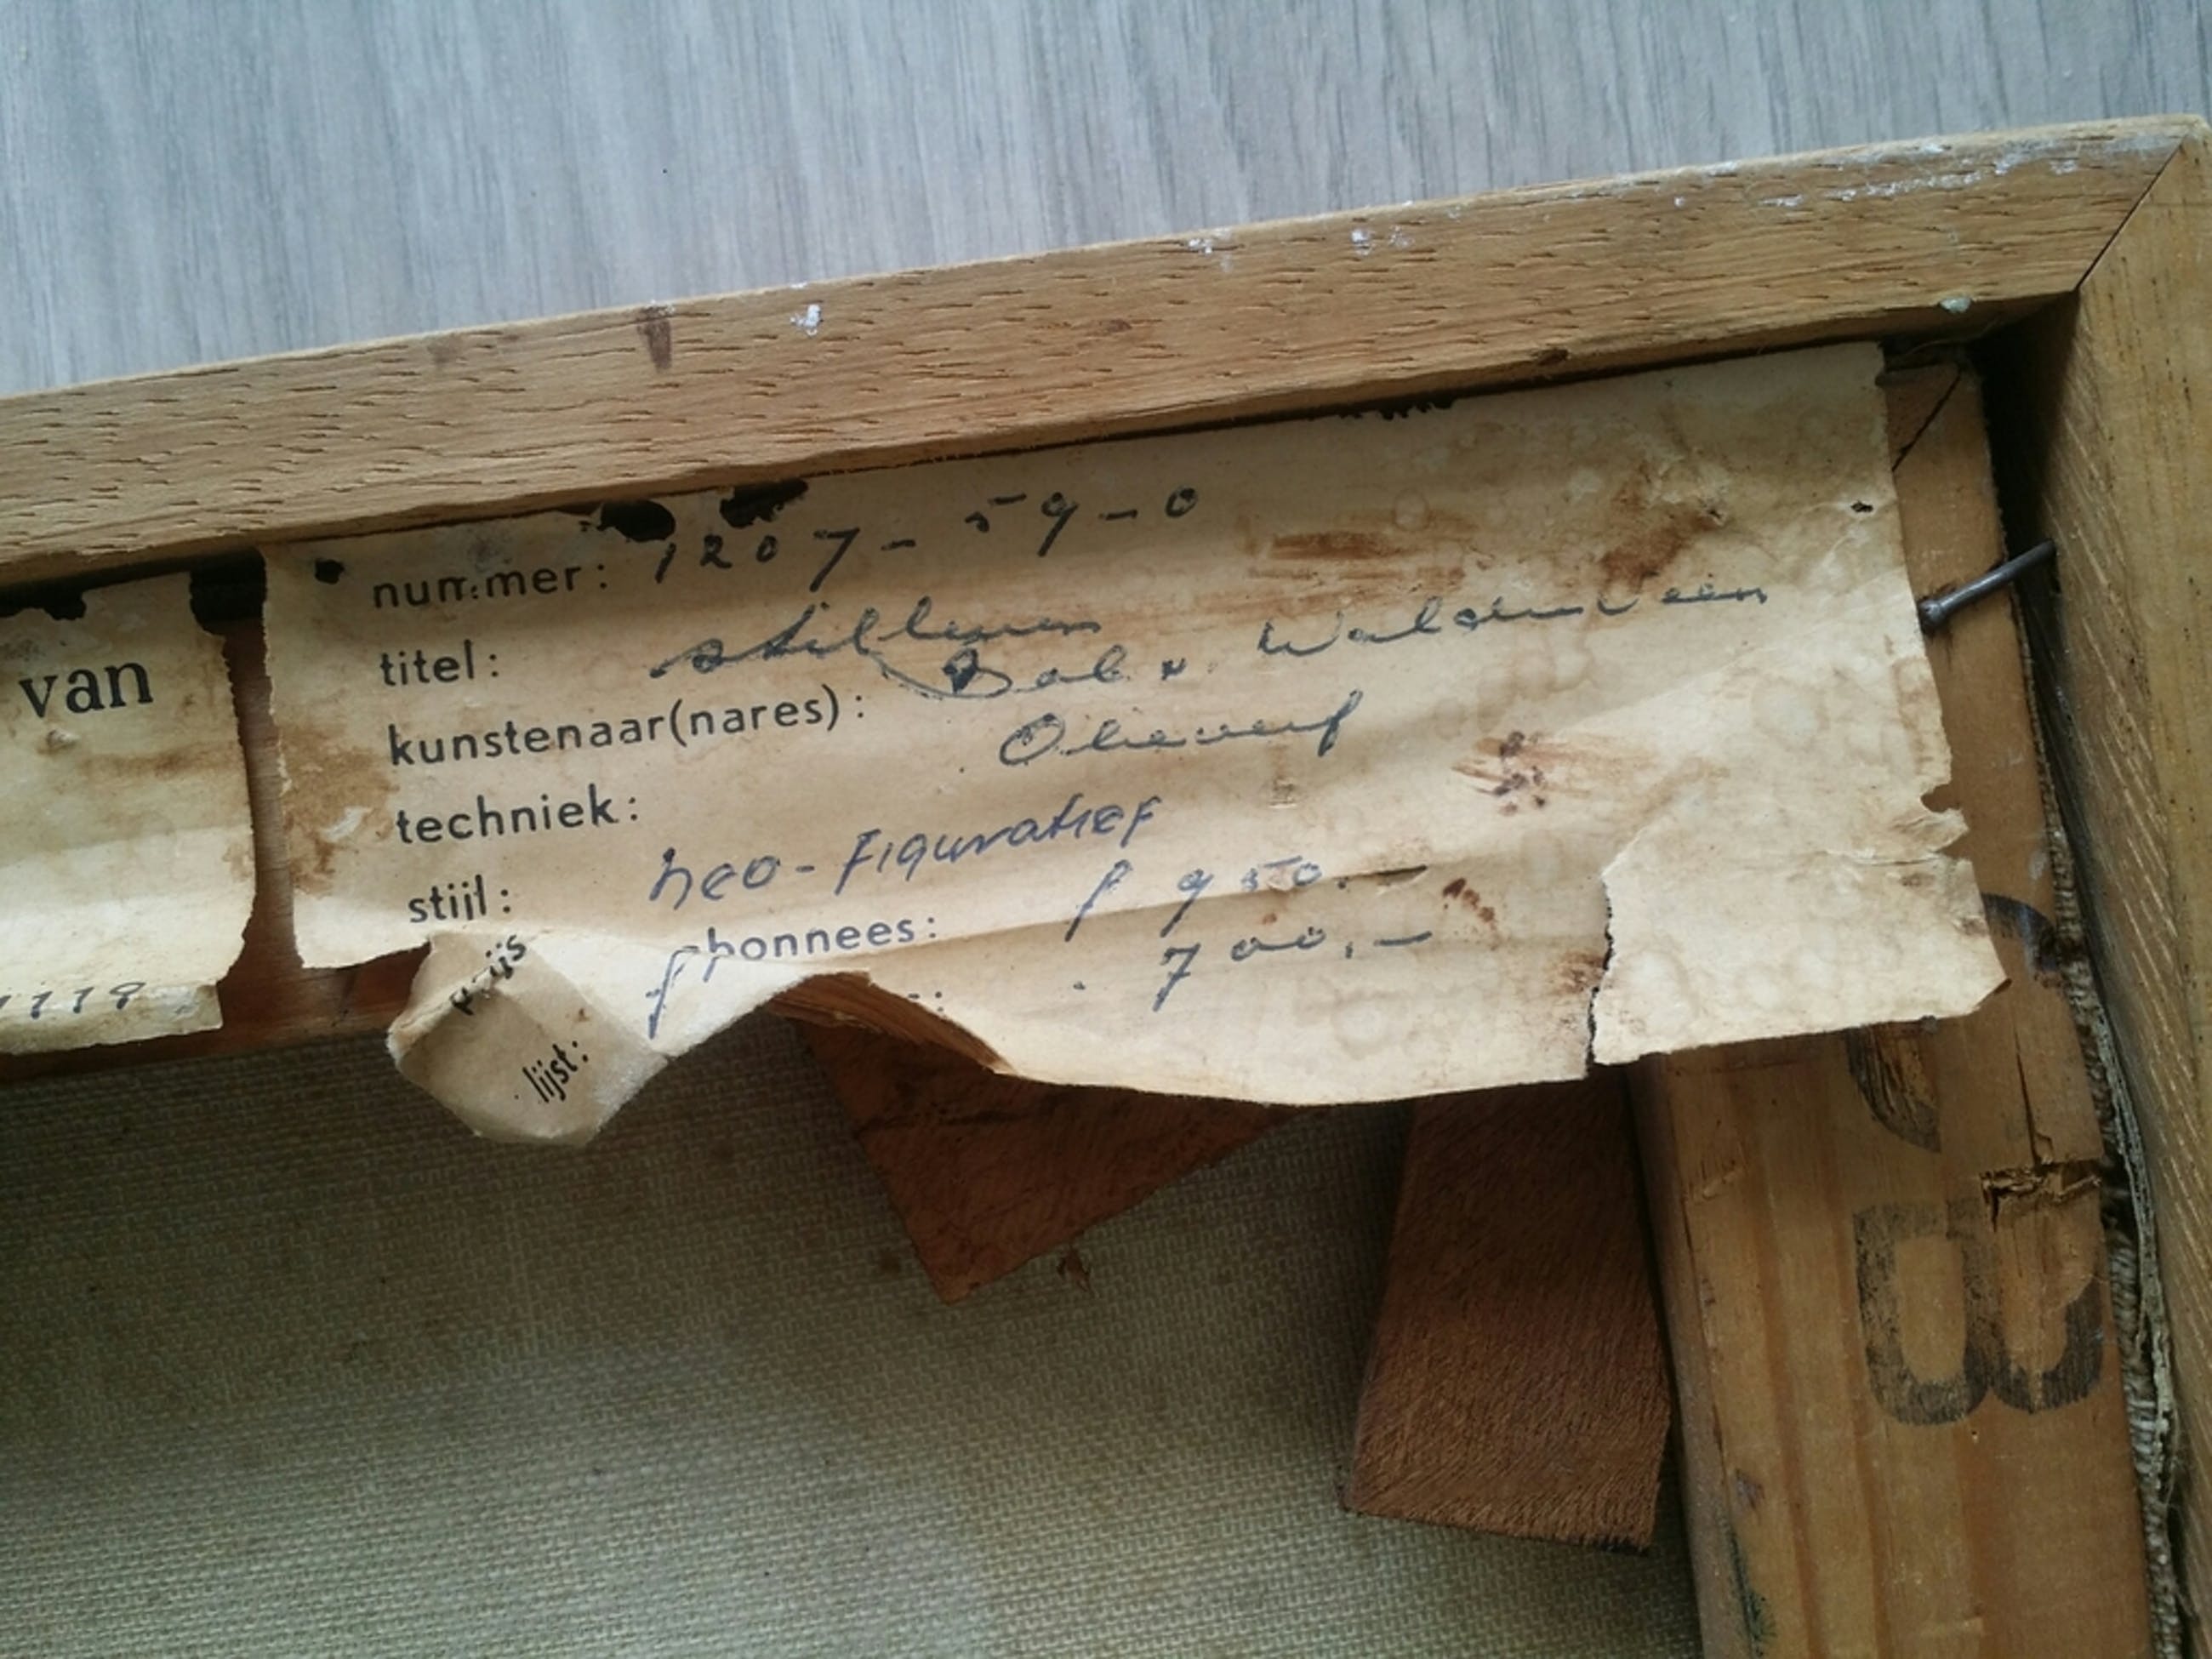 van
1778
nummer: 1207-59-0
titel: stilleven
kunstenaar(nares): Bob v. Walderveen
techniek: Olieverf
stijl: neo-Figuratief
prijs f 950.-
abonnees: 700,-
lijst:
B